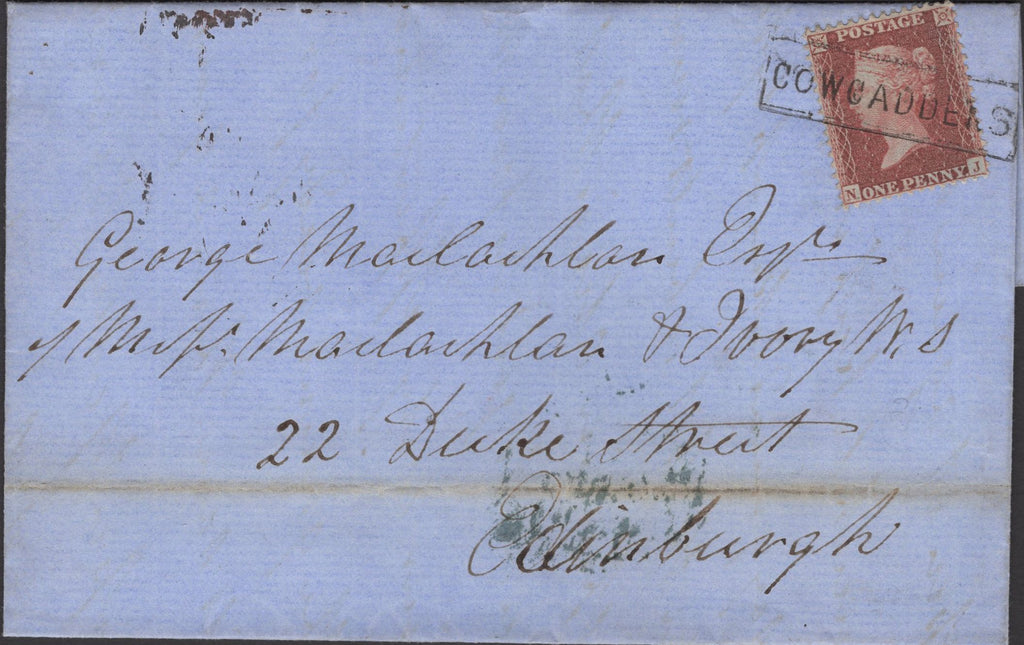 POSTAGE
COWCADDENS
N ONE PENNY J
George Maclachlan Esqre
of Messrs. Maclachlan & Ivory W.S
22 Duke Street
Edinburgh